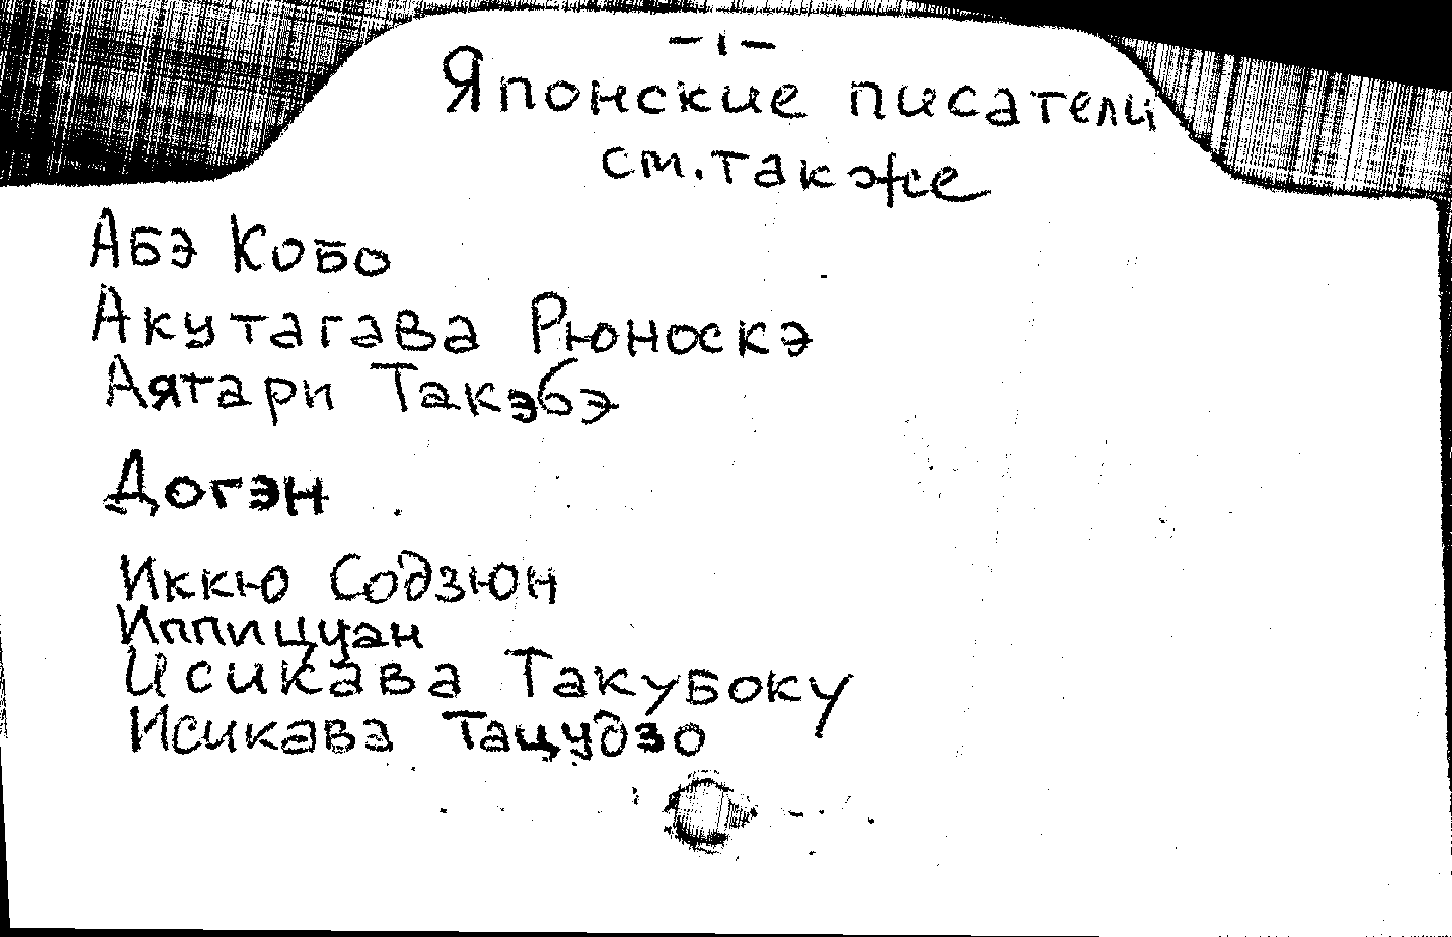 - 1 -
Японские писатели
см. также
Абэ Кобо
Акутагава Рюноскэ
Аятари Такэбэ
Догэн
Иккю Содзюн
Иппицуан
Исикава Такубоку
Исикава Тацудзо